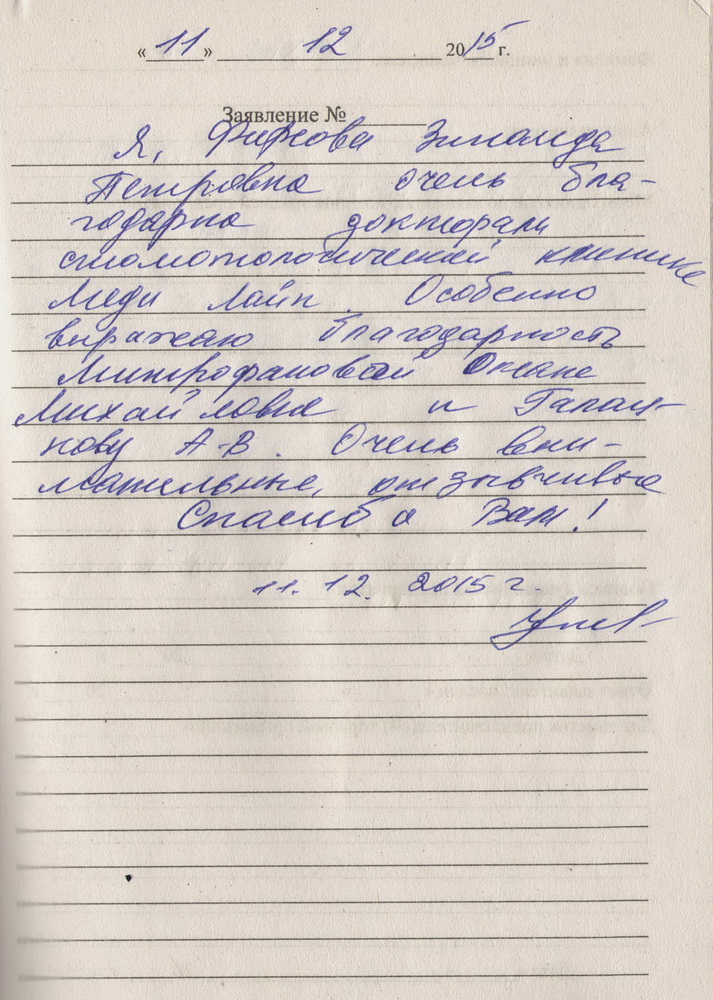 « 11 » 12 2015 г.
Заявление №
Я, Фиркова Зинаида
Петровна очень бла-
годарна докторам
стоматологической клинике
Меди Лайн. Особенно
выражаю благодарность
Митрофановой Оксане
Михайловне и
А.В. Очень вни-
мательные, отзывчивые
Спасибо Вам!
11.12.2015 г